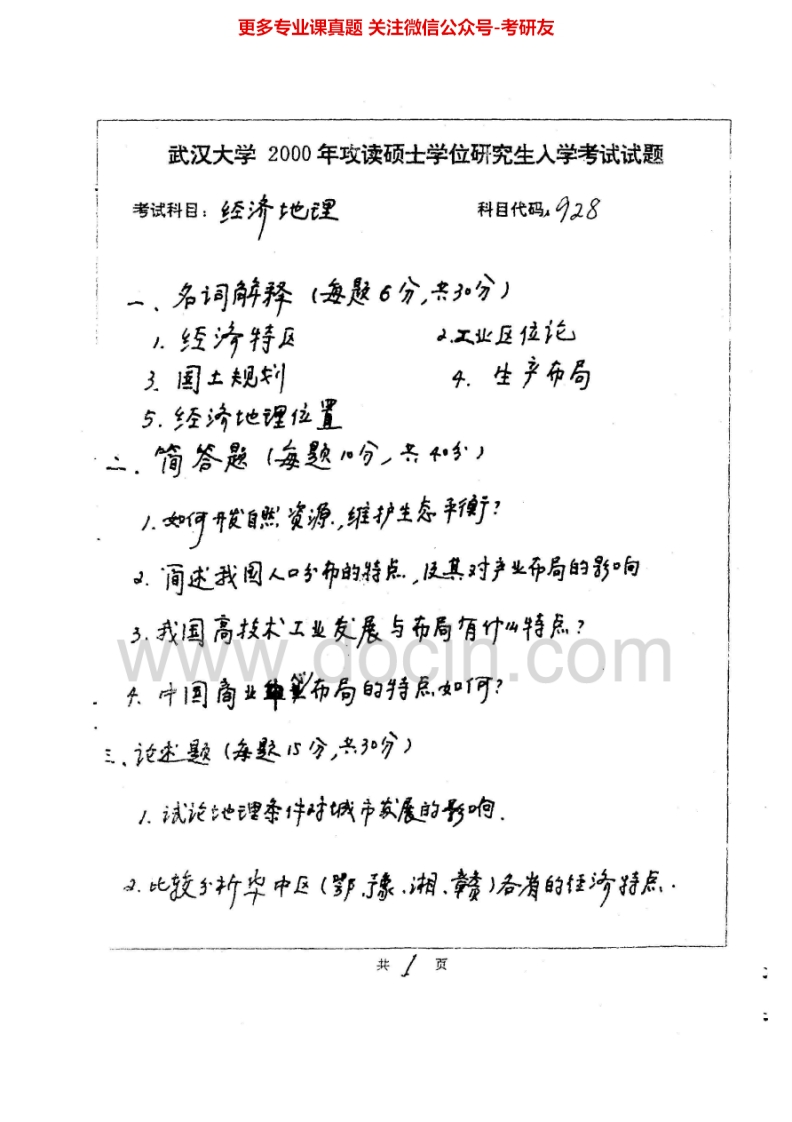 更多专业课真题 关注微信公众号-考研友
武汉大学 2000 年攻读硕士学位研究生入学考试试题
考试科目：经济地理 科目代码：928
一、名词解释（每题6分，共30分）
1. 经济特区 2. 工业区位论
3. 国土规划 4. 生产布局
5. 经济地理位置
二、简答题（每题10分，共40分）
1. 如何开发自然资源，维护生态平衡？
2. 简述我国人口分布的特点，及其对产业布局的影响
3. 我国高技术工业发展与布局有什么特点？
www.docin.com
4. 中国商业布局的特点如何？
三、论述题（每题15分，共30分）
1. 试论地理条件对城市发展的影响.
2. 比较分析华中区（鄂、豫、湘、赣）各省的经济特点.
共 1 页